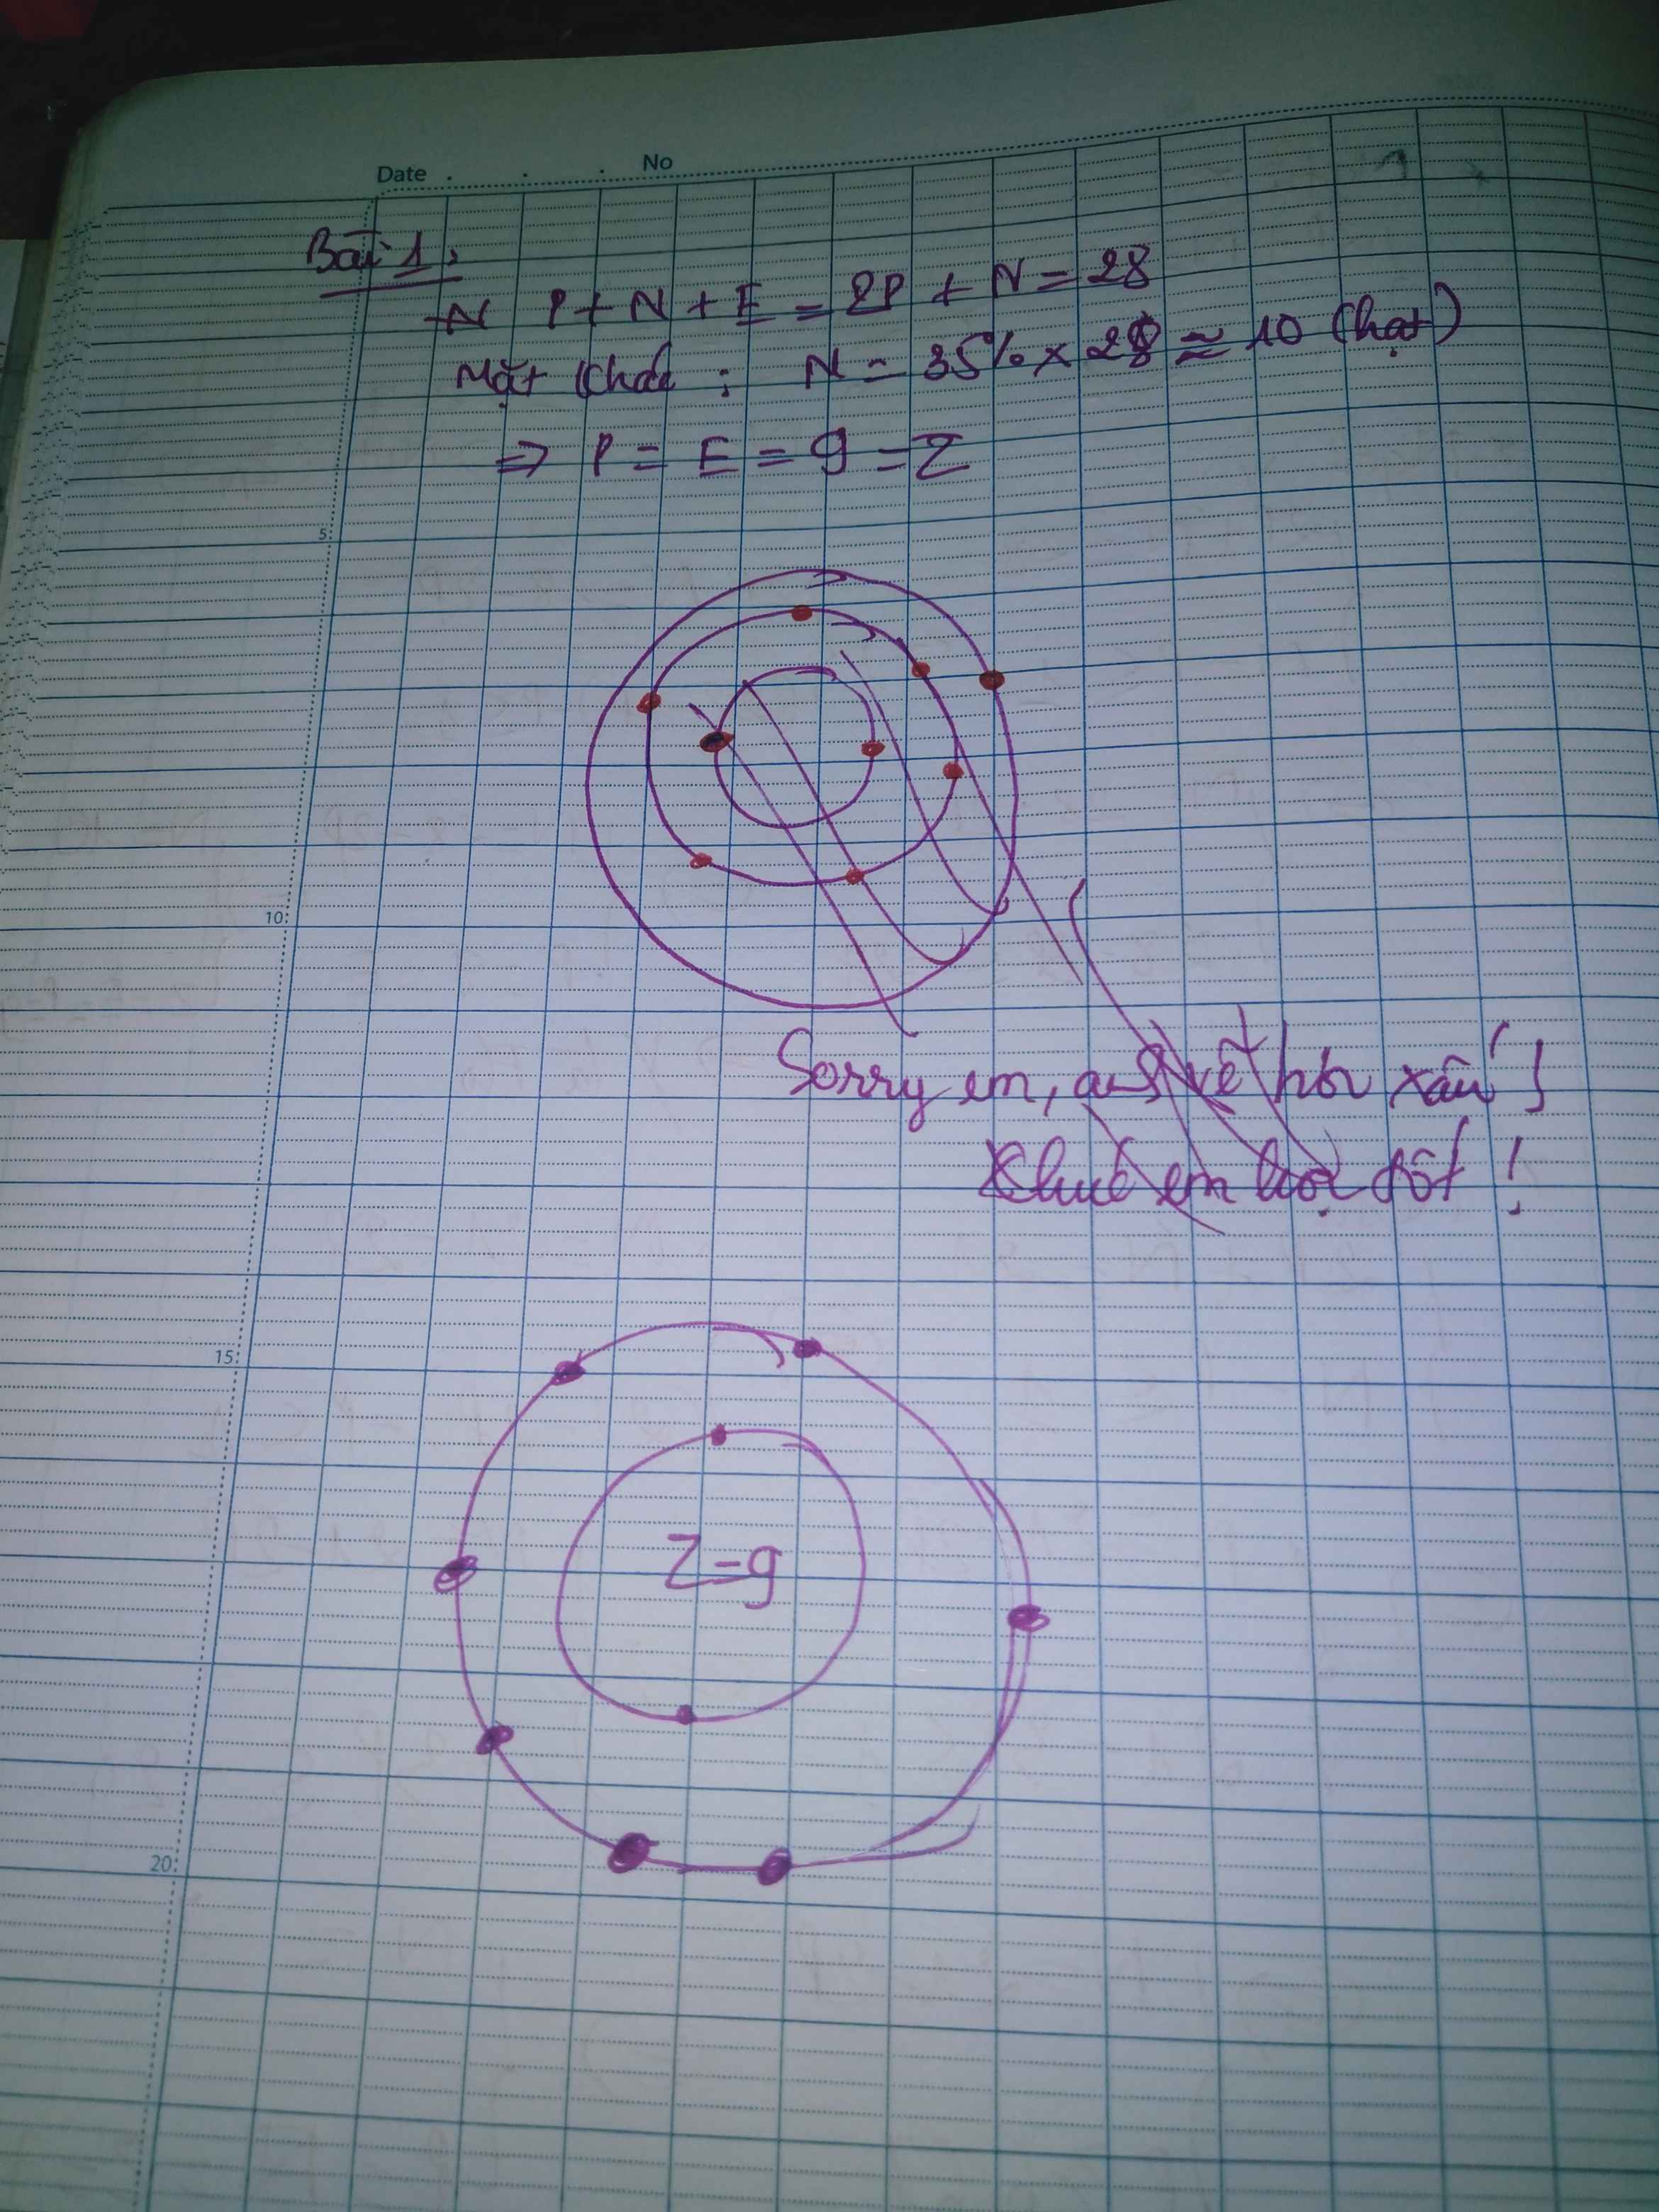 Date No
Bài 1:
N P + N + E = 2P + N = 28
Mặt khác : N = 35% x 28 ≈ 10 (hạt)
=> P = E = 9 = Z
5
10
Sorry em, a vẽ hơi xấu!
Chúc em học tốt !
15
Z=9
20